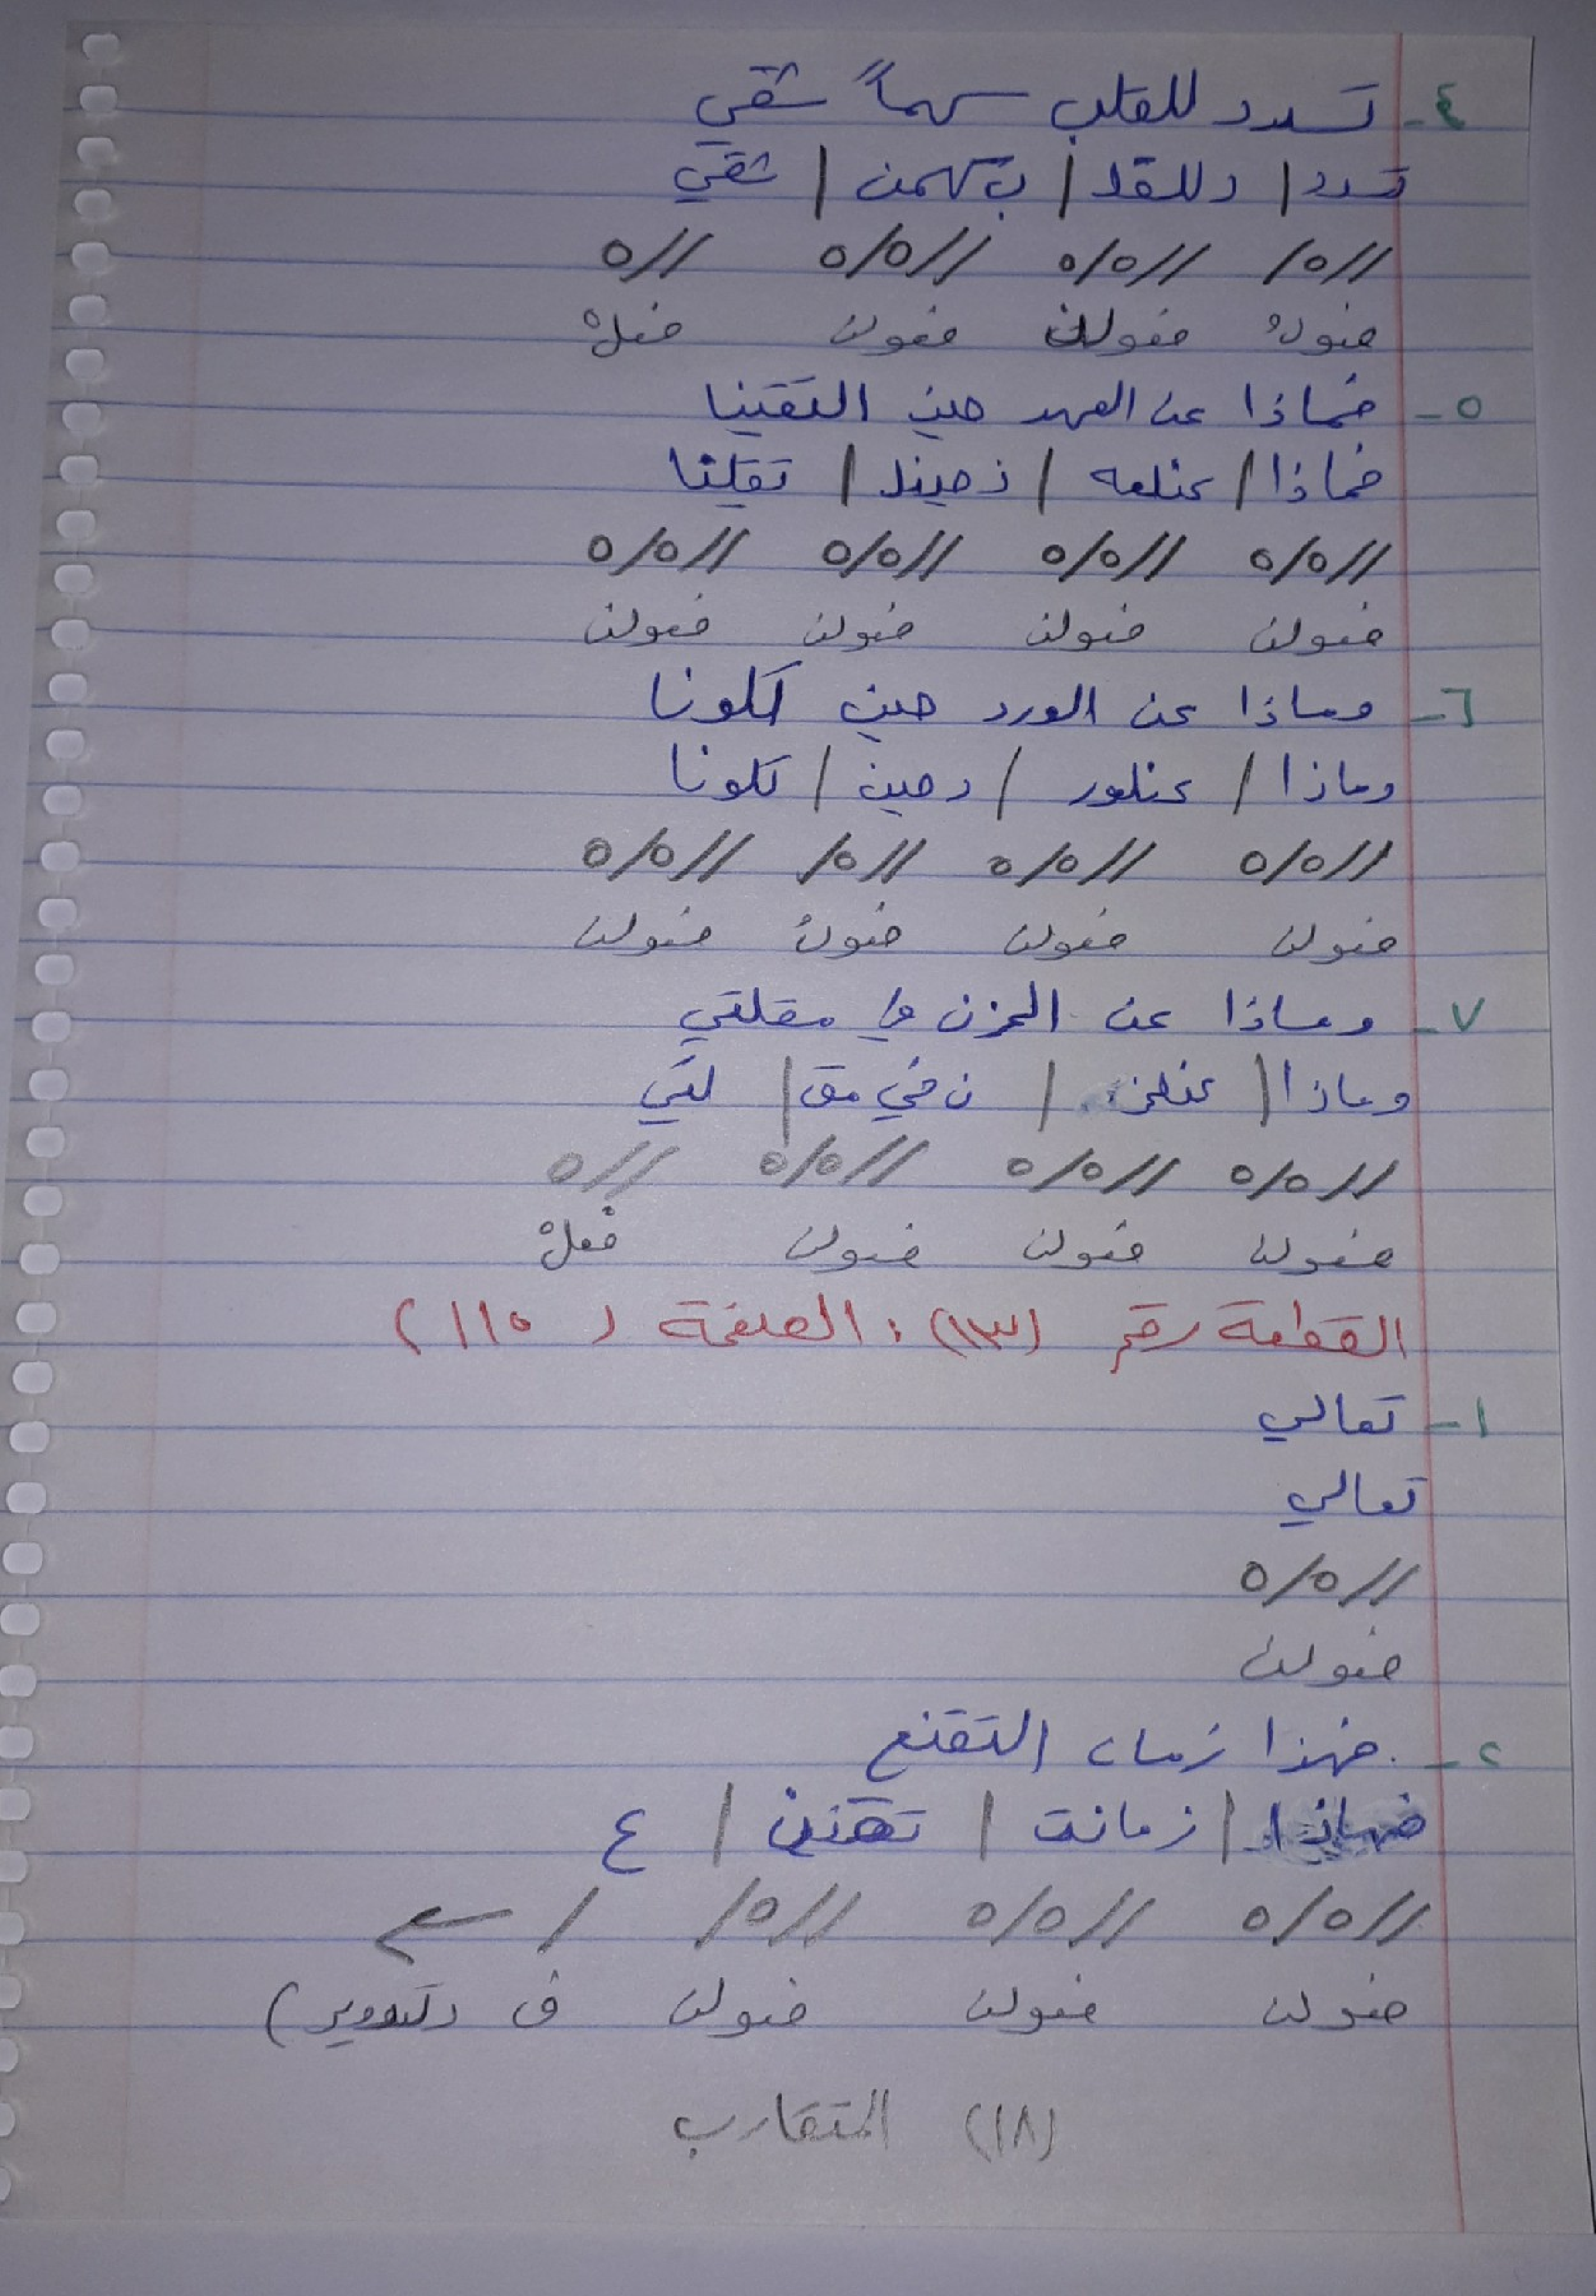 ٤- تسدد للقلب سهماً شقي
تسدد / دللقل / بسهمن / شقي
//٥/ //٥/٥ //٥/٥ //٥
فعولُ فعولن فعولن فعلْ
٥- فماذا عن العهد حين التقينا
فماذا / عنلعه / دحينل / تقينا
//٥/٥ //٥/٥ //٥/٥ //٥/٥
فعولن فعولن فعولن فعولن
٦- وماذا عن الورد حين لكونا
وماذا / عنلور / دحين / لكونا
//٥/٥ //٥/٥ //٥/ //٥/٥
فعولن فعولن فعولُ فعولن
٧- وماذا عن الحزن في مقلتي
وماذا / عنلحز / ن في مق / لتي
//٥/٥ //٥/٥ //٥/٥ //٥
فعولن فعولن فعولن فعلْ
القطعة رقم (١٣)، الصفحة (١١٥)
١- تعالي
تعالي
//٥/٥
فعولن
٢- فهذا زمان التقنع
فهاذا / زمانت / تقنن / ع
//٥/٥ //٥/٥ //٥/ /
فعولن فعولن فعولن ف (تدوير)
(١٨) المتقارب